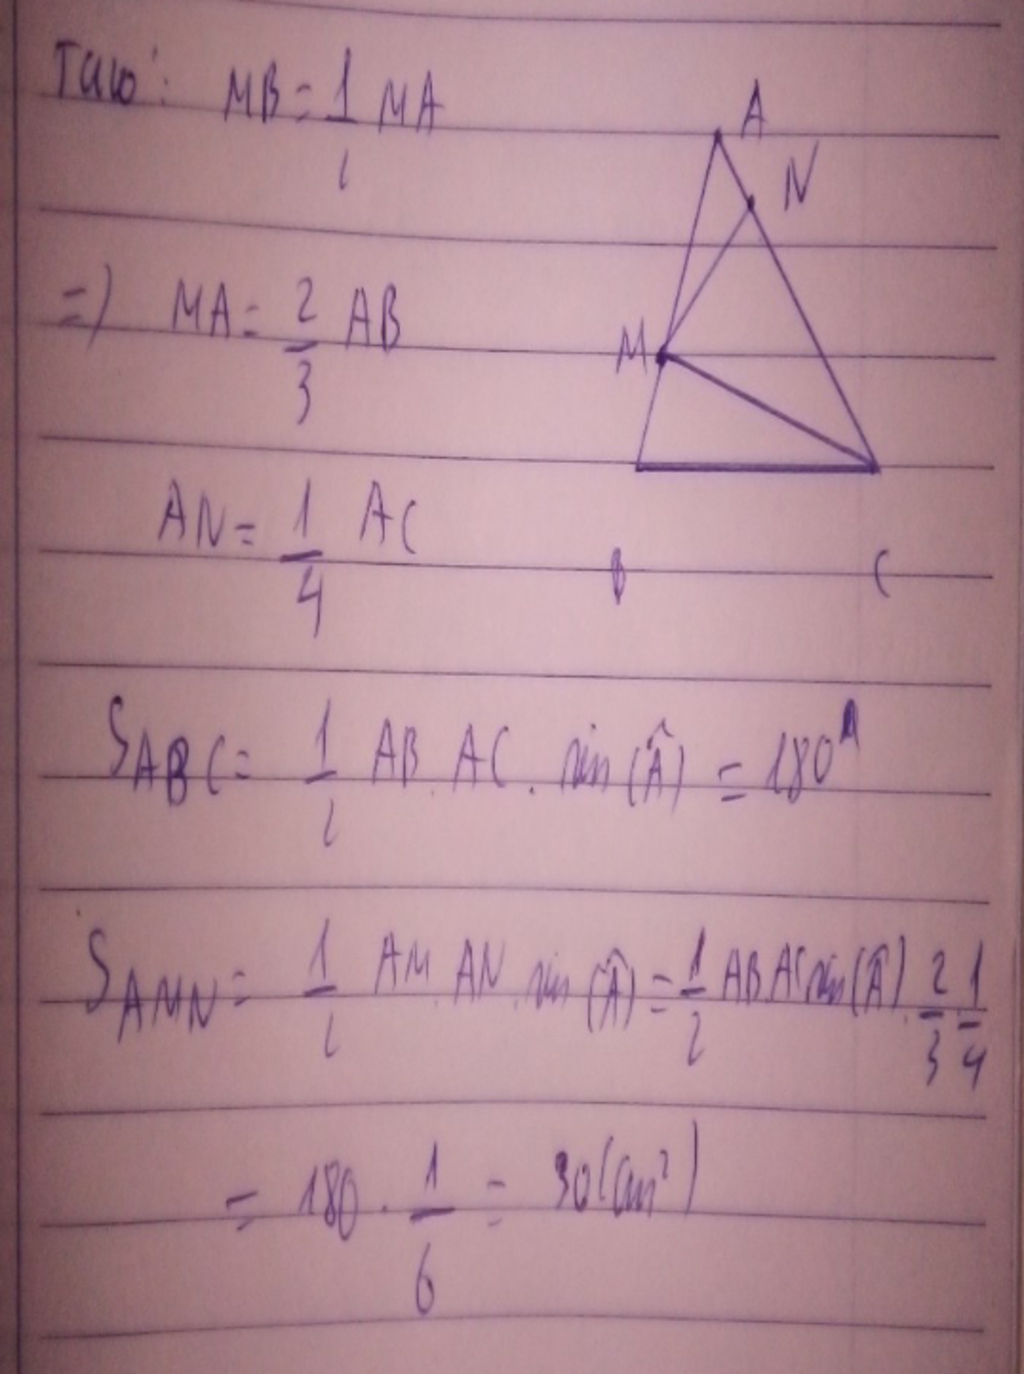 Ta có: MB = 1/2 MA
=) MA = 2/3 AB
AN = 1/4 AC
S ABC = 1/2 AB . AC . sin(Â) = 180
S AMN = 1/2 AM . AN . sin(Â) = 1/2 AB AC sin(Â) . 2/3 1/4
= 180 . 1/6 = 30(cm²)
A
N
M
B
C